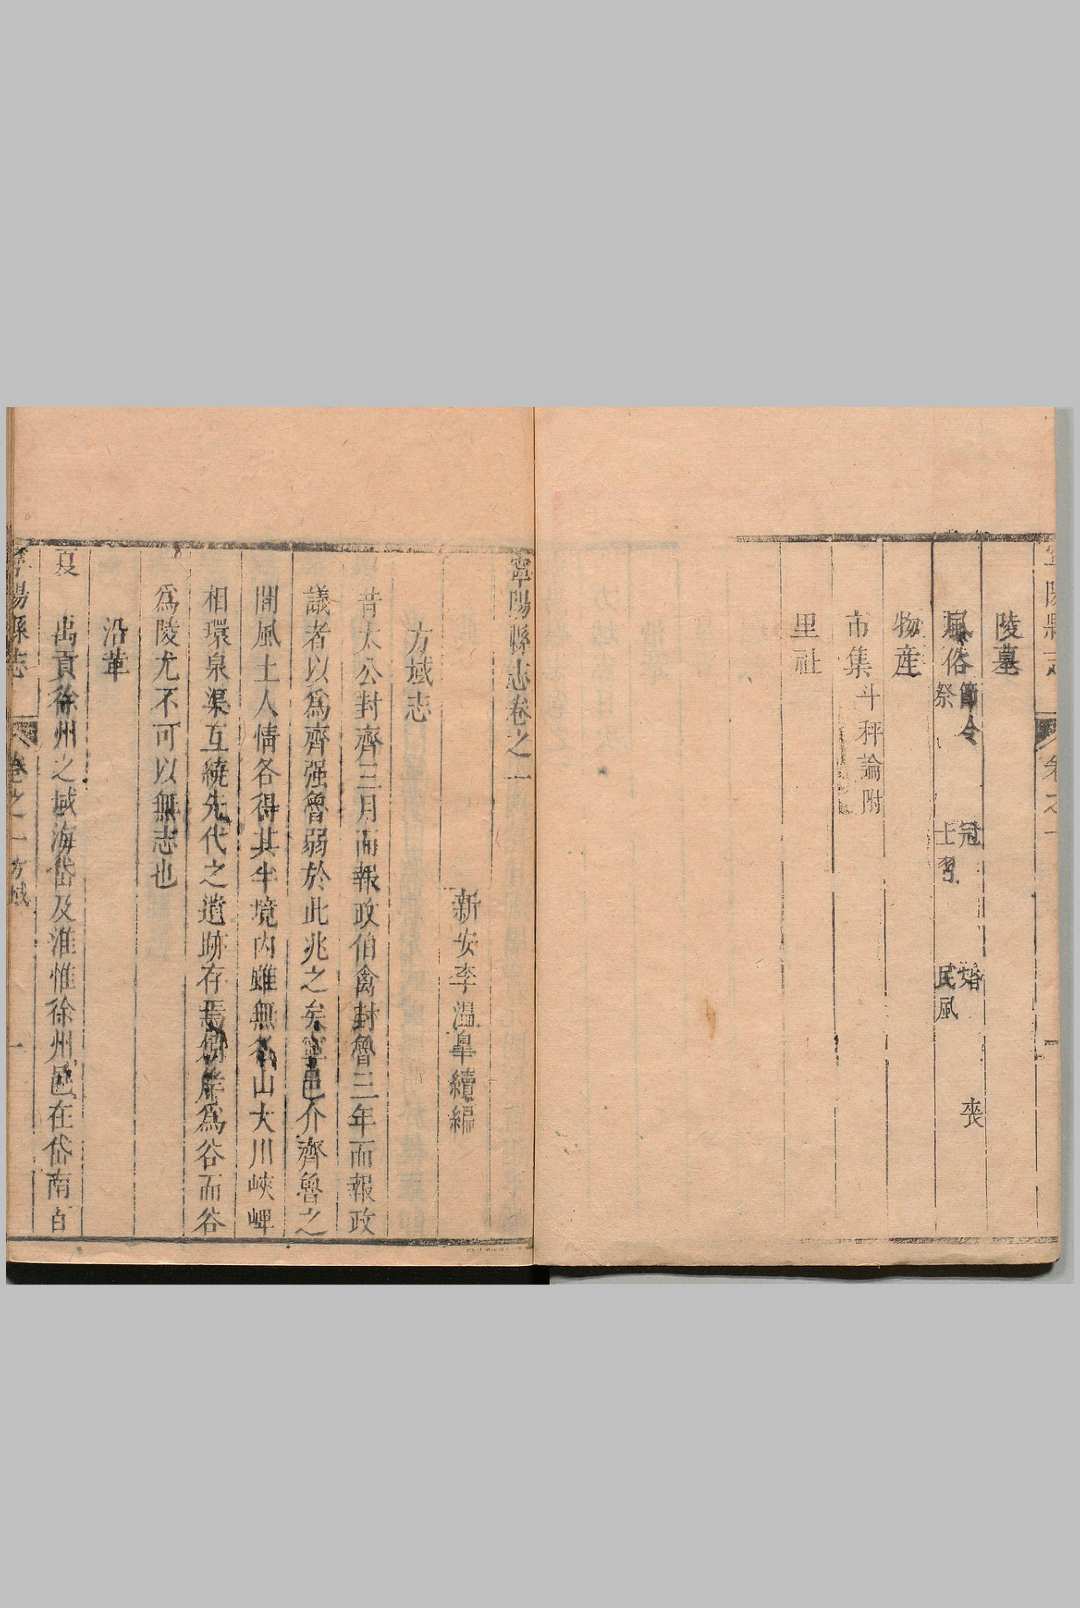 寧陽縣志 卷之一
陵墓
風俗 節令 冠 婚 喪
祭 士習 民風
物産
市集 斗秤論附
里社
寧陽縣志卷之一
新安李温臯續編
方域志
昔太公封齊三月而報政伯禽封魯三年而報政
議者以爲齊强魯弱於此兆之矣寧邑介齊魯之
間風土人情各得其半境内雖無名山大川峽岬
相環泉渠互繞先代之遺跡存焉例岸爲谷而谷
爲陵尤不可以無志也
沿革
夏 禹貢徐州之域海岱及淮惟徐州邑在岱南自
寧陽縣志 卷之一 方域 一